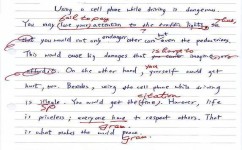 Using a cell phone while driving is dangerous.
fail to pay
You may lost your attention to the traffic lights, so
endanger
that you would not only other car but even the pedestrians.
is large to
This would cause big damages that
afford it. On the other hand, yourself could get
hurt, too. Besides, using the cell phone while driving
citation
is illegal. You would get the (fine). However, life
is priceless; everyone have to respect others. That
gram.
is what makes the world peace.
gram.